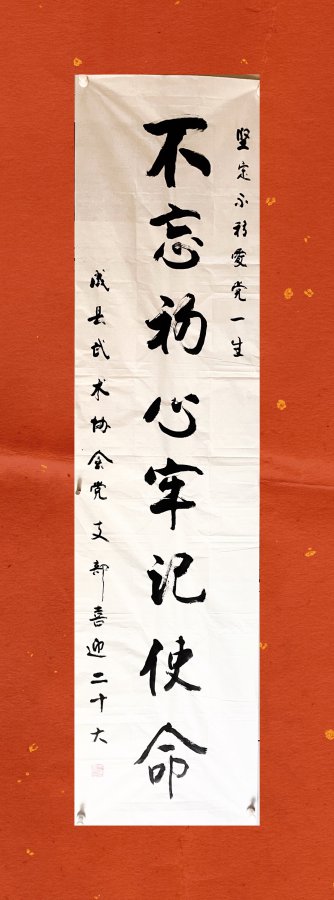 坚定不移爱党一生
不忘初心牢记使命
成县武术协会党支部喜迎二十大